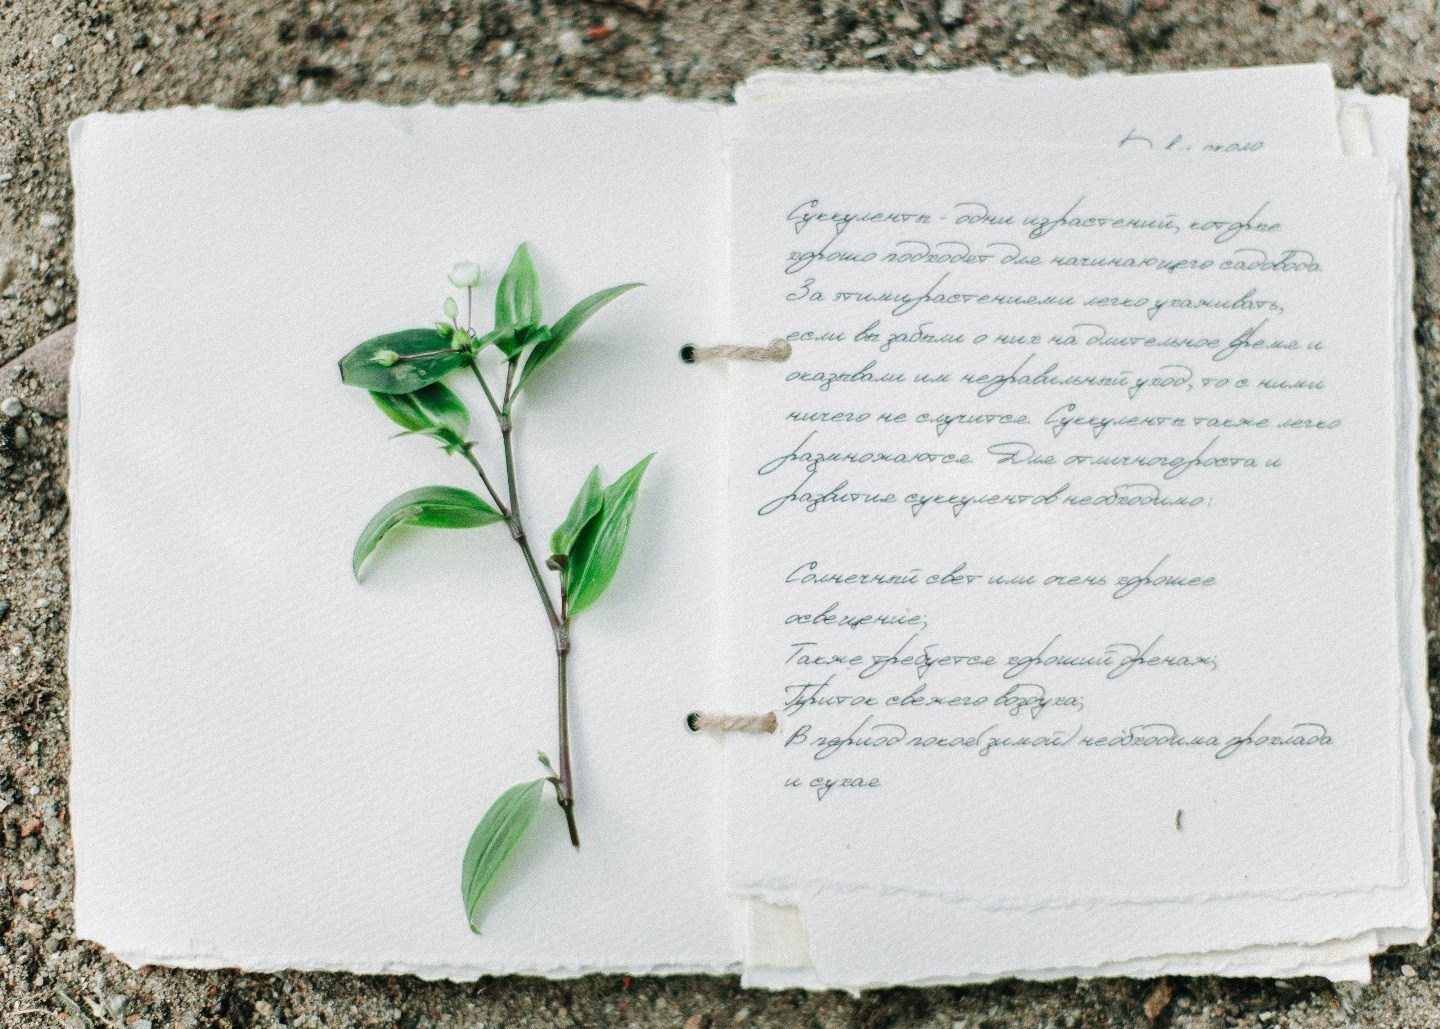 около
Суккуленты - одни из растений, которые
хорошо подходят для начинающего садовода.
За этими растениями легко ухаживать,
если вы забыли о них на длительное время и
оказывали им неправильный уход, то с ними
ничего не случится. Суккуленты также легко
размножаются. Для отличного роста и
развития суккулентов необходимо:
Солнечный свет или очень хорошее
освещение;
Также требуется хороший дренаж;
Приток свежего воздуха;
В период покоя (зимой) необходима прохлада
и сухая